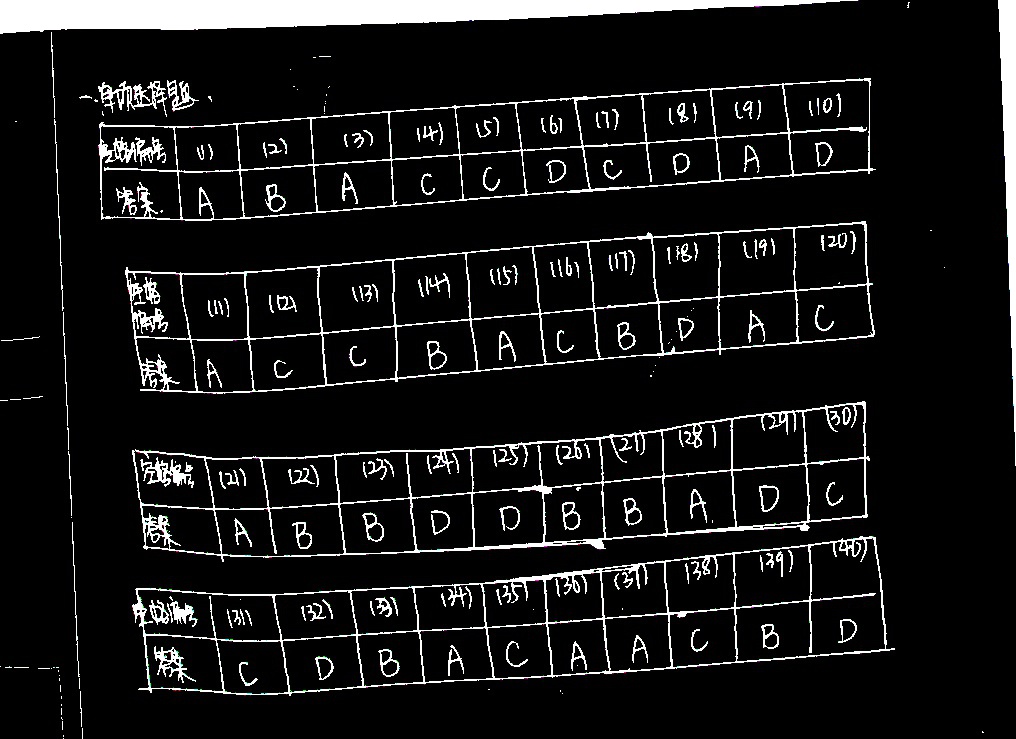 一.单项选择题.
空格编号 (1) (2) (3) (4) (5) (6) (7) (8) (9) (10)
答案. A B A C C D C D A D
空格编号 (11) (12) (13) (14) (15) (16) (17) (18) (19) (20)
答案 A C C B A C B D A C
空格编号 (21) (22) (23) (24) (25) (26) (27) (28) (29) (30)
答案 A B B D D B B A D C
空格编号 (31) (32) (33) (34) (35) (36) (37) (38) (39) (40)
答案 C D B A C A A C B D